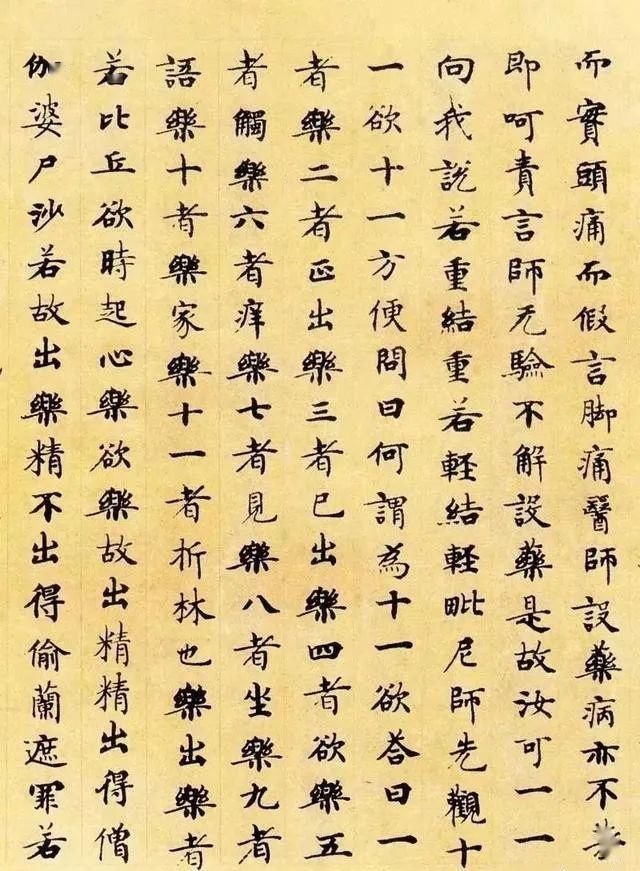 而實頭痛而假言脚痛醫師設藥病亦不
即呵責言師无驗不解設藥是故汝可一一
向我說若重結重若輕結輕毗尼師先觀十
一欲十一方便問曰何謂為十一欲荅曰一
者樂二者正出樂三者已出樂四者欲樂五
者觸樂六者痒樂七者見樂八者坐樂九者
語樂十者樂家樂十一者折林也樂出樂者
若比丘欲時起心樂欲樂故出精精出得僧
伽婆尸沙若故出樂精不出得偷蘭遮罪若